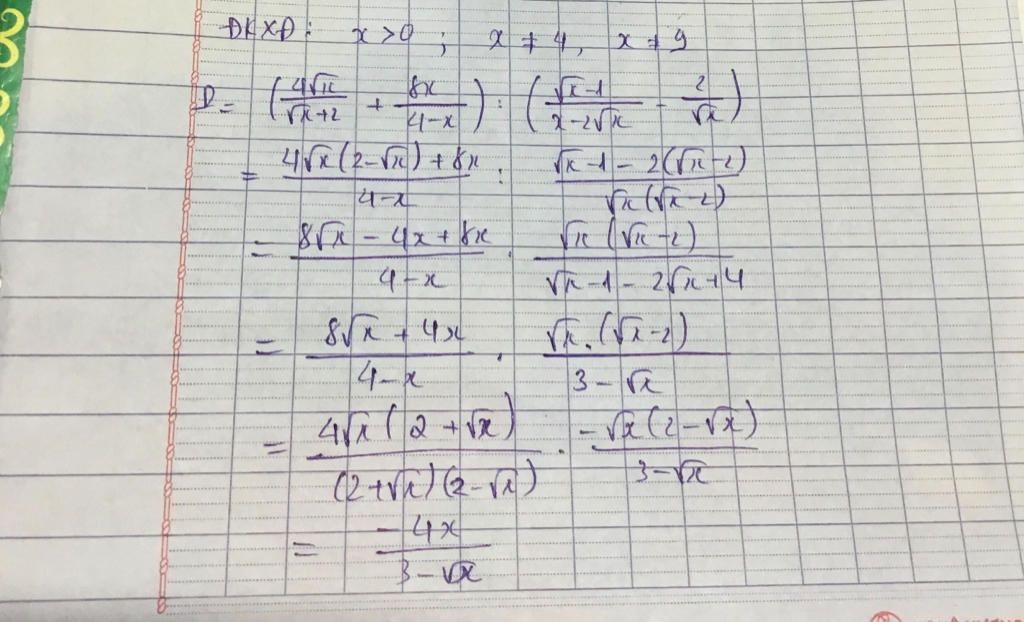 ĐKXĐ: x > 0 ; x ≠ 4, x ≠ 9
D = (4√x/(√x+2) + 8x/(4-x)) : ((√x-1)/(x-2√x) - 2/√x)
= (4√x(2-√x)+8x)/(4-x) : (√x-1-2(√x-2))/(√x(√x-2))
= (8√x-4x+8x)/(4-x) . (√x(√x-2))/(√x-1-2√x+4)
= (8√x+4x)/(4-x) . (√x.(√x-2))/(3-√x)
= (4√x(2+√x))/((2+√x)(2-√x)) . (-√x(2-√x))/(3-√x)
= (-4x)/(3-√x)